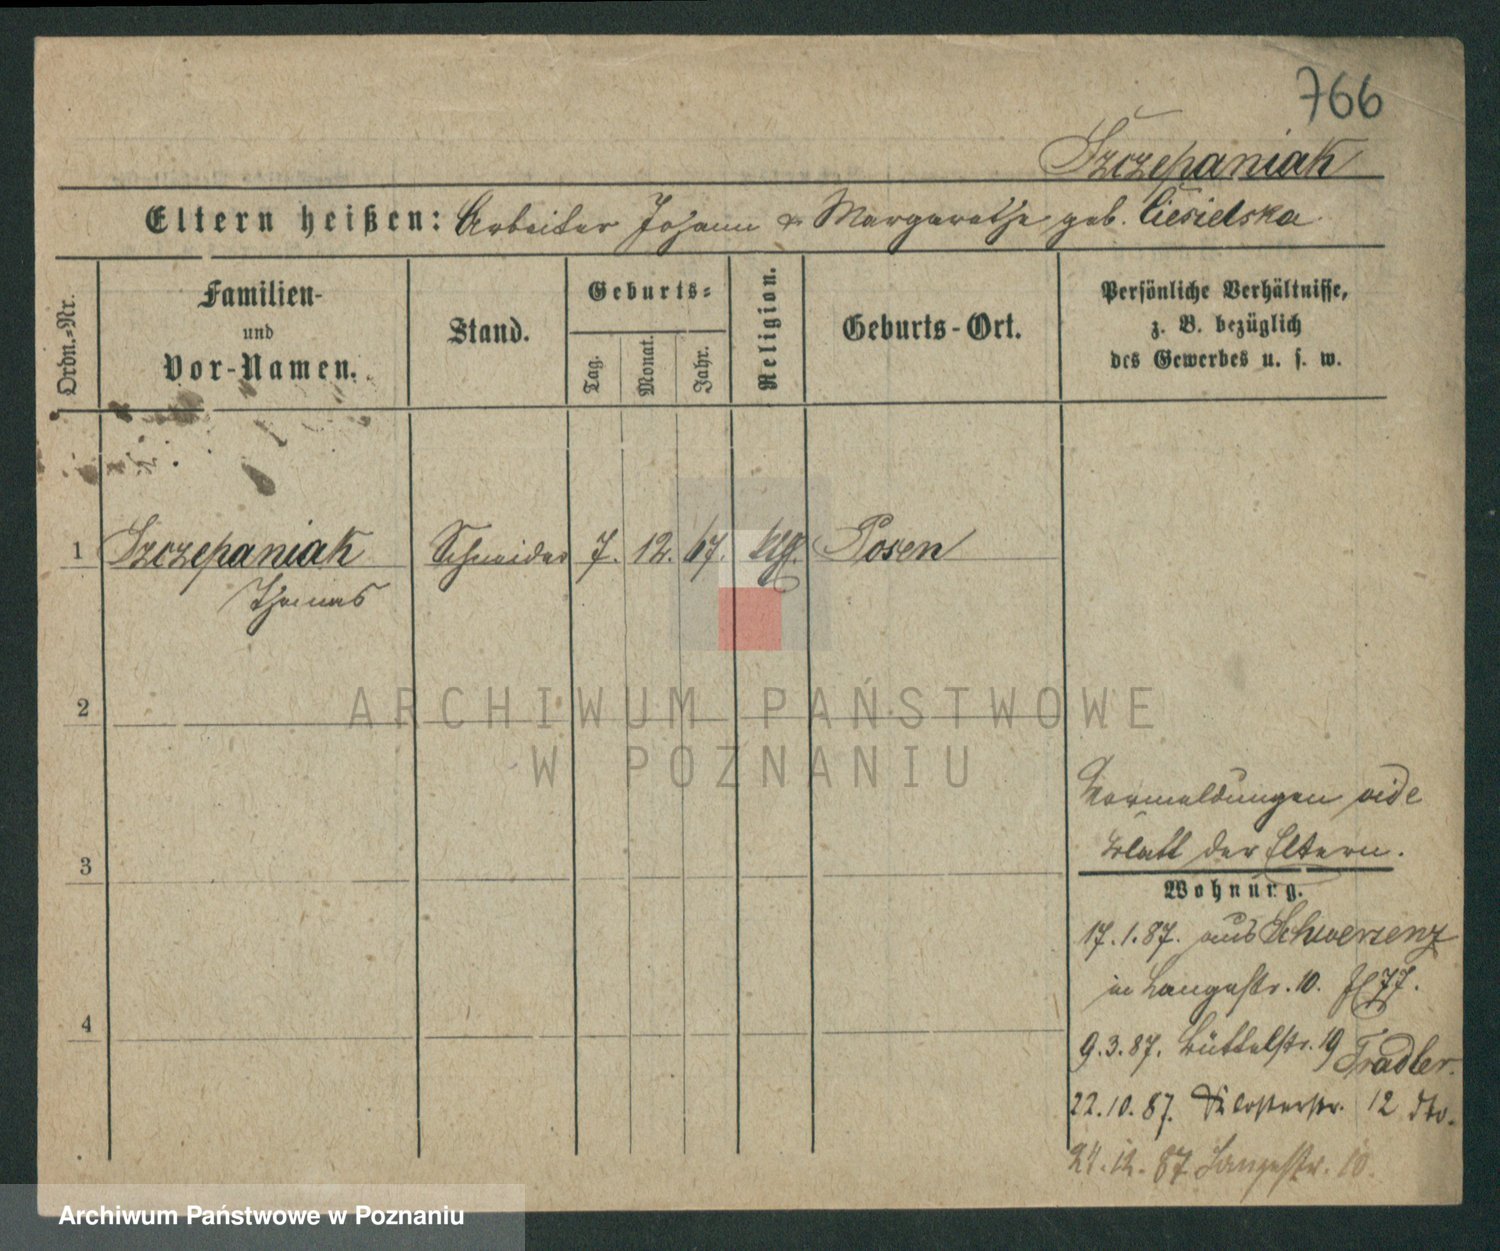 766
Szczepaniak
Eltern heißen: Arbeiter Johann & Margarethe geb. Ciesielska
Ordn.-Nr.
Familien-
und
Vor-Namen.
Stand.
Geburts-
Tag.
Monat.
Jahr.
Religion.
Geburts-Ort.
Persönliche Verhältnisse,
z. B. bezüglich
des Gewerbes u. s. w.
1 Szczepaniak Schneider 7. 12. 67. Posen
Thomas
2
3
4
ARCHIWUM PAŃSTWOWE
W POZNANIU
Vormeldungen vide
Blatt der Eltern.
Wohnung.
17.1.87. aus Schwersenz
in Langestr. 10.
9.3.87. Büttelstr. 19 Tradler.
22.10.87. Klosterstr. 12 dto.
24.12.87 Langestr. 10.
Archiwum Państwowe w Poznaniu